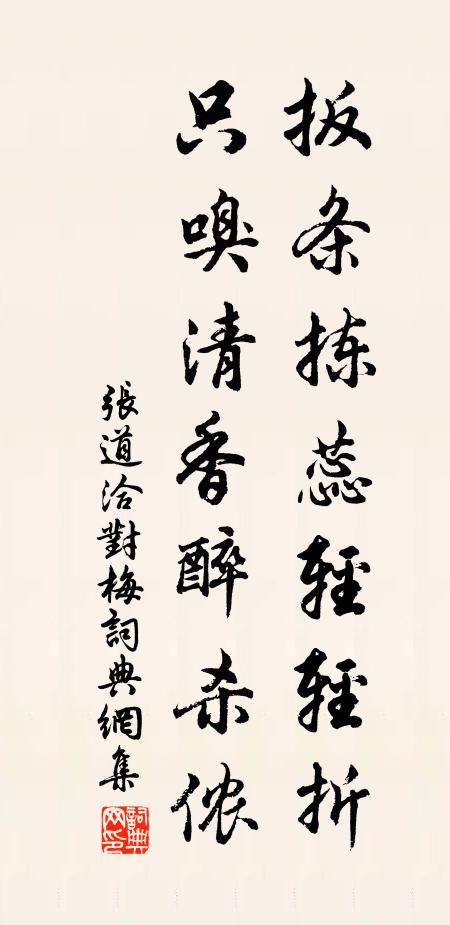 扳条拣蕊輕輕折
只嗅清香醉杀侬
張道洽對梅詞典網集
詞典網印